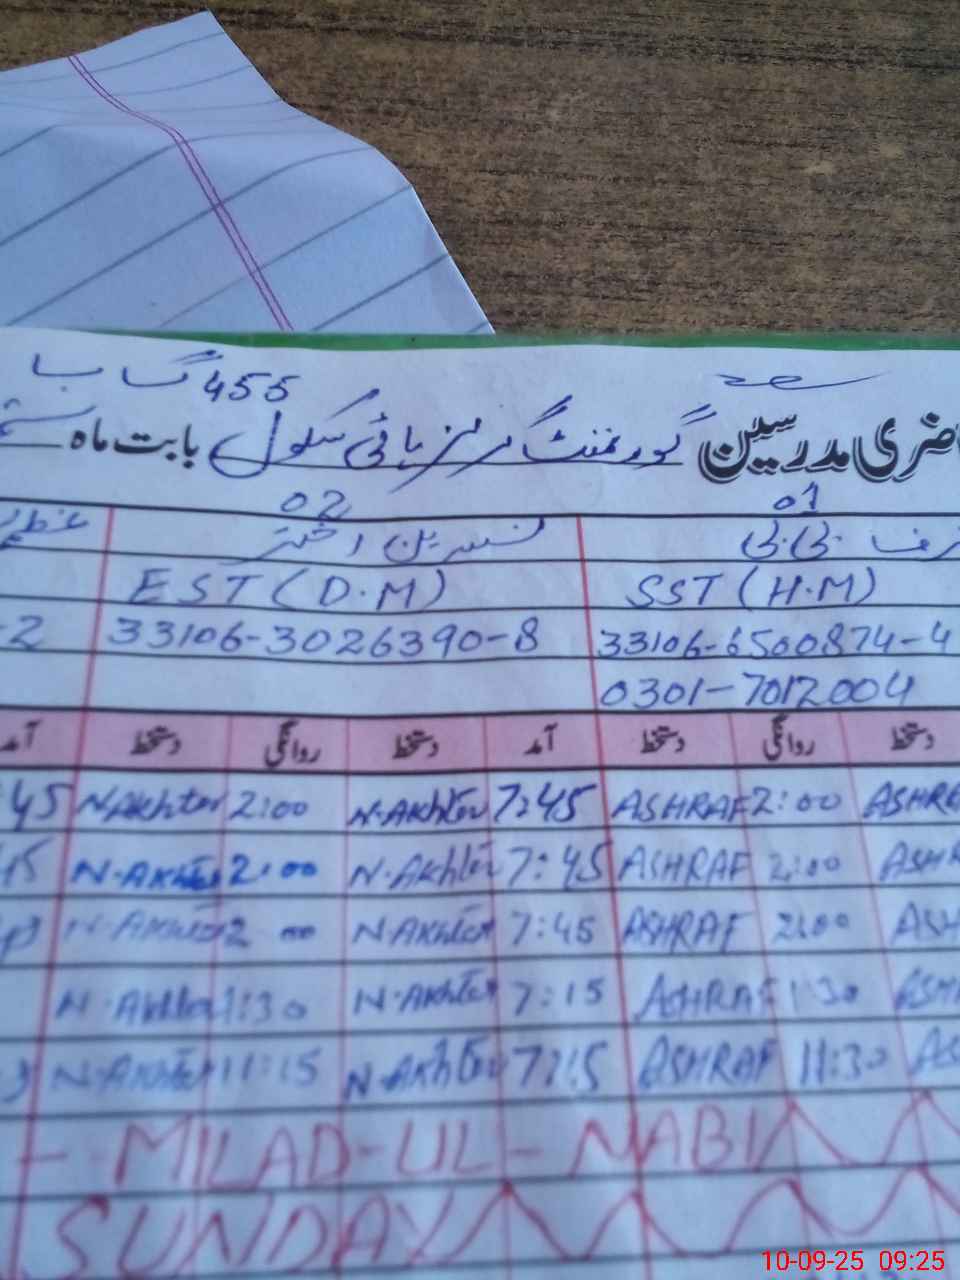 455 گ ب
ضری مدرسین گورنمنٹ گرلز ہائی سکول بابت ماہ
01 02
بی بی نسرین اختر
SST (H.M) EST (D.M)
33106-6500874-4 33106-3026390-8 -2
0301-7012004
دستخط روانگی دستخط آمد دستخط روانگی دستخط آمد
:45 N.Akhter 2:00 N.Akhter 7:45 ASHRAF 2:00 ASHRA
45 N.Akhter 2:00 N.Akhter 7:45 ASHRAF 2:00 ASHR
N.Akhter 2 00 N.Akhter 7:45 ASHRAF 2:00 ASH
N.Akhter 1:30 N.Akhter 7:15 ASHRAF 1:30 ASH
N.Akhter 11:15 N.Akhter 7:15 ASHRAF 11:30 AS
- MILAD-UL-NABI
SUNDAY
10-09-25 09:25